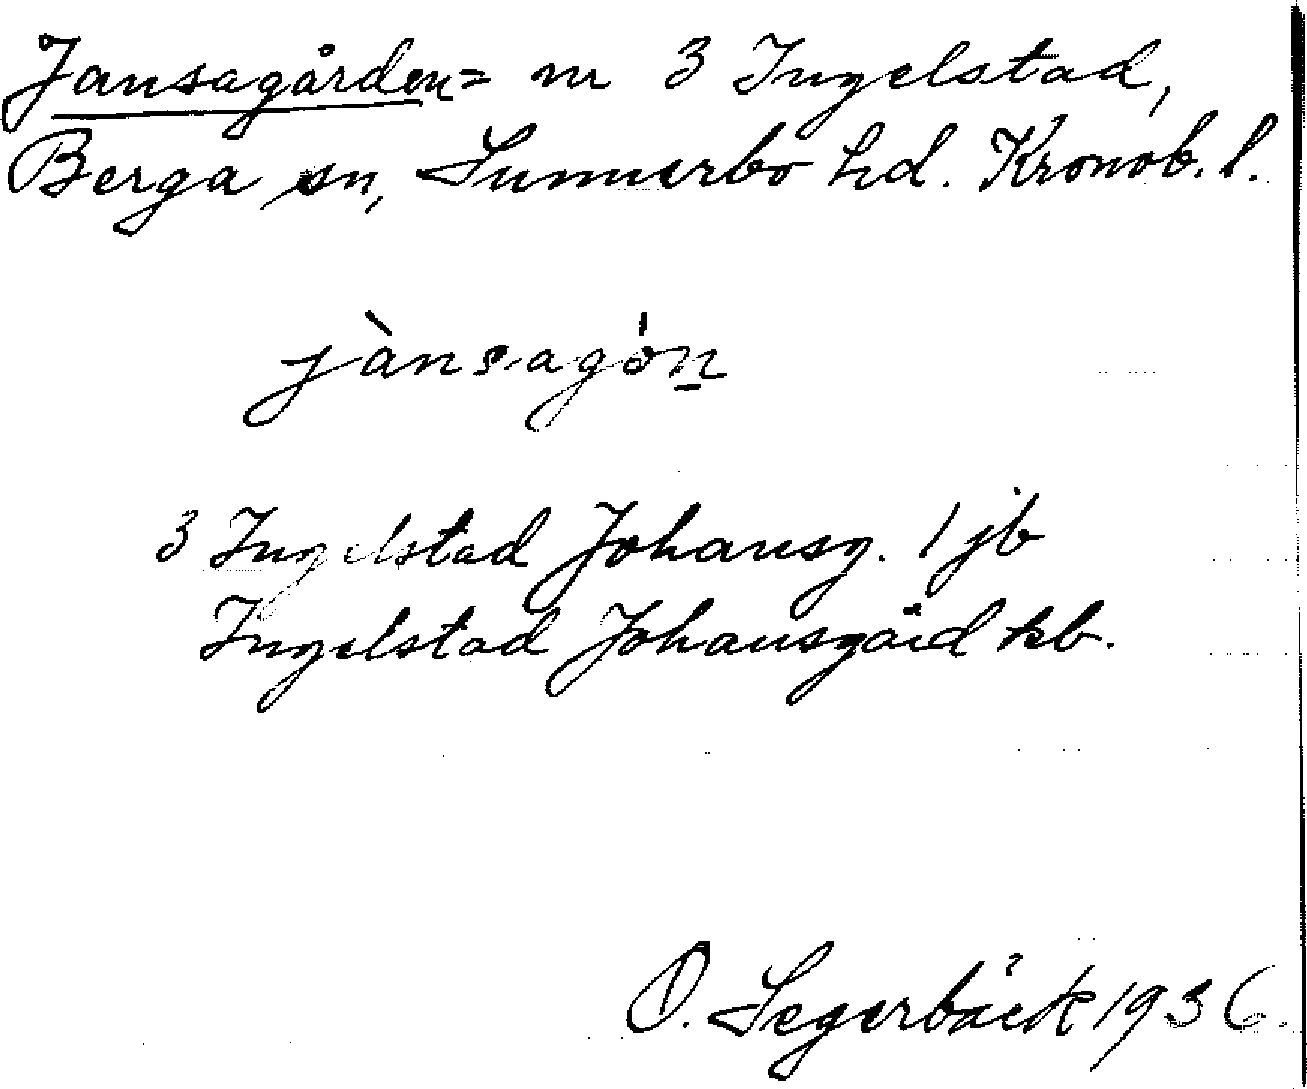 Jansagården = nr 3 Ingelstad,
Berga sn, Sunnerbo hd. Kronob. l.
jànsagón
3 Ingelstad Johansg. 1 jb
Ingelstad Johansgård kb.
O. Segerbäck 1936.